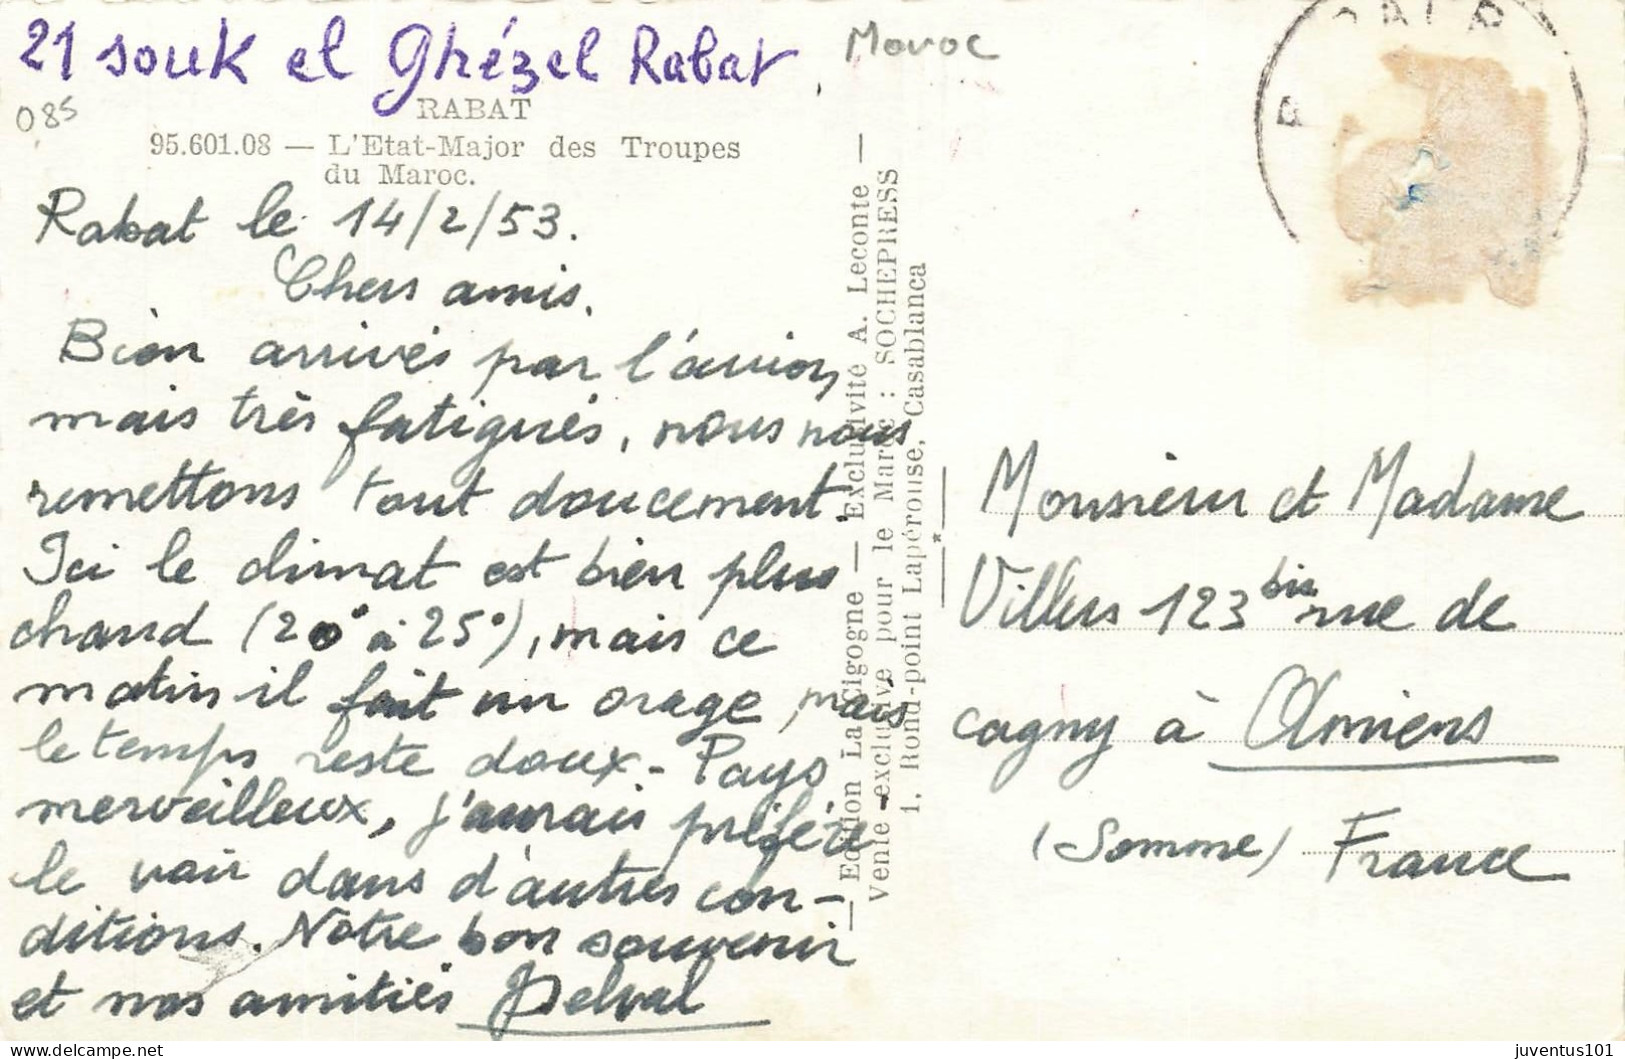 21 souk el Ghézel Rabat
Maroc
085
RABAT
95.601.08 — L'Etat-Major des Troupes
du Maroc.
Rabat le 14/2/53.
Chers amis.
Bien arrivés par l'avion,
mais très fatigués, nous nous
remettons tout doucement.
Ici le climat est bien plus
chaud (20° à 25°), mais ce
matin il fait un orage, mais
le temps reste doux - Pays
merveilleux, j'aurais préféré
le voir dans d'autres con-
ditions. Notre bon souvenir
et nos amitiés JDelval
— Edition La Cigogne — Exclusivité A. Leconte —
Vente exclusive pour le Maroc : SOCHEPRESS
1. Rond-point Lapérouse, Casablanca
*
Monsieur et Madame
Villers 123 bis rue de
cagny à Amiens
(Somme) France
juventus101